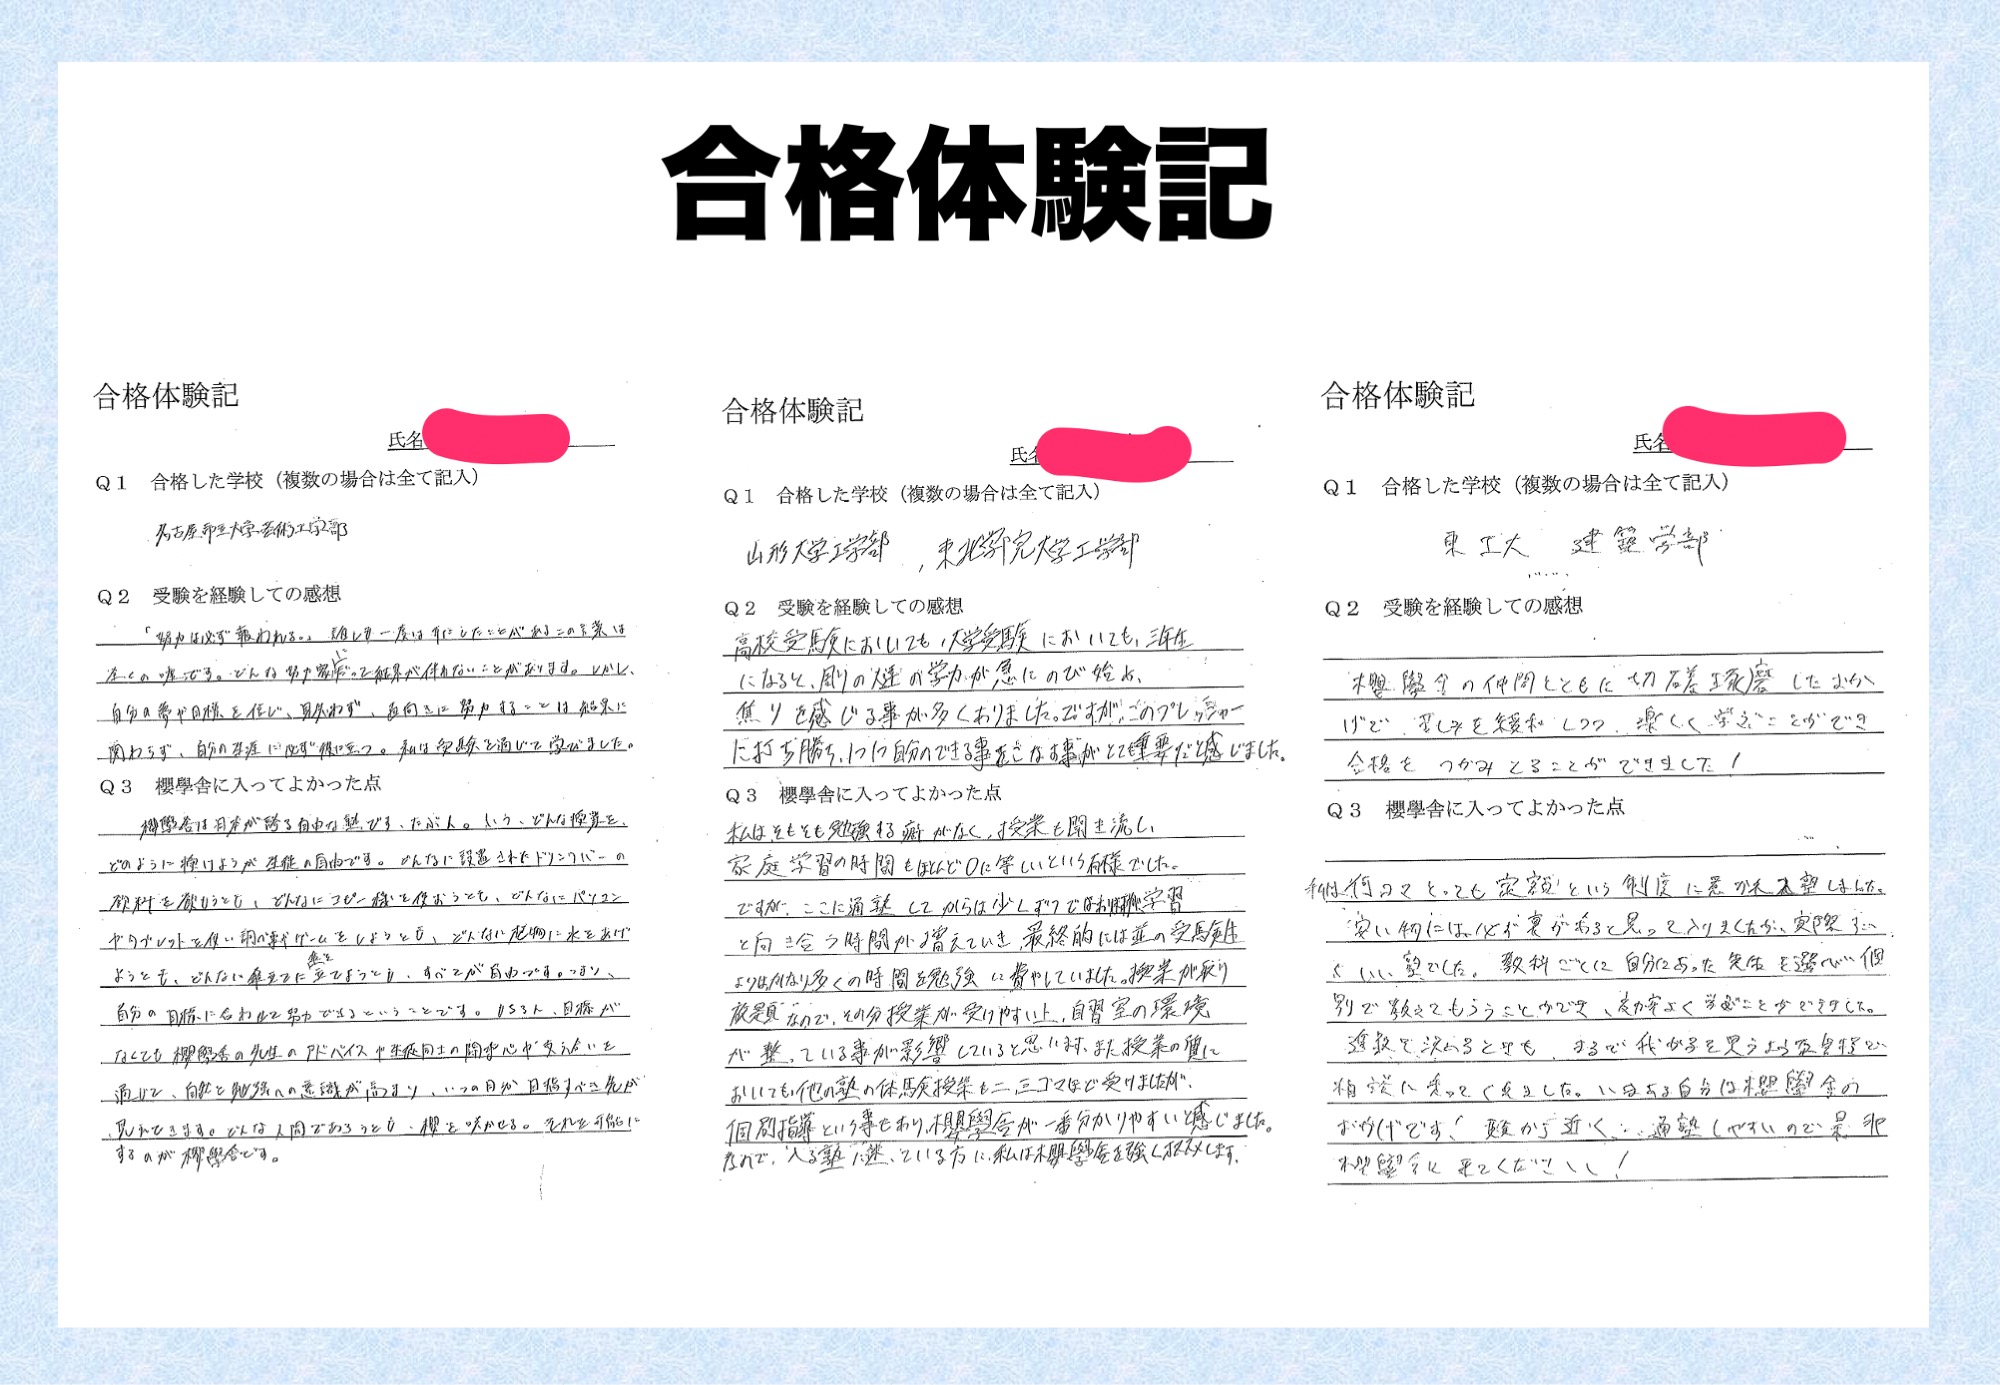 合格体験記
合格体験記
氏名
Q1 合格した学校（複数の場合は全て記入）
名古屋市立大学芸術工学部
Q2 受験を経験しての感想
「努力は必ず報われる。」誰しも一度は耳にしたことがあるこの言葉は
全くの嘘です。どんな努力家だって結果が伴わないことがあります。しかし、
自分の夢や目標を信じ、見失わず、前向きに努力することは結果に
関わらず、自分の生涯に必ず役に立つ。私は受験を通じて学びました。
Q3 櫻學舎に入ってよかった点
櫻學舎は日本が誇る自由な塾です、たぶん。いつ、どんな授業を、
どのように受けようが生徒の自由です。どんなに設置されたドリンクバーの
飲料を飲もうとも、どんなにコピー機を使おうとも、どんなにパソコン
やタブレットを使い調べ ゲームをしようとも、どんなに植物に水をあげ
ようとも、どんなに 立てようとも、すべてが自由です。つまり、
自分の目標に合わせて努力できるということです。もちろん、目標が
なくても櫻學舎の先生のアドバイスや生徒同士の 心や支え合いを
通じて、自然と勉強への意識が高まり、いつの日か目指すべき先が
見えてきます。どんな人間であろうとも、櫻を咲かせる。それを可能に
するのが櫻學舎です。
合格体験記
氏名
Q1 合格した学校（複数の場合は全て記入）
山形大学工学部 , 東北学院大学工学部
Q2 受験を経験しての感想
高校受験においても、大学受験においても、三年生
になると、周りの人達の学力が急にのび始め、
焦りを感じる事が多くありました。ですが、このプレッシャー
に打ち勝ち、1つ1つ自分のできる事をこなす事がとても重要だと感じました。
Q3 櫻學舎に入ってよかった点
私はそもそも勉強する癖がなく、授業も聞き流し、
家庭学習の時間もほとんど0に等しいという有様でした。
ですが、ここに通塾してからは少しずつではあり 学習
と向き合う時間が増えていき、最終的には並の受験生
よりはかなり多くの時間を勉強に費やしていました。授業が取り
放題なので、その分授業が受けやすい上、自習室の環境
が整っている事が影響していると思います。また授業の質に
おいても他の塾の体験授業も二、三コマほど受けましたが、
個別指導という事もあり、櫻學舎が一番分かりやすいと感じました。
なので、入る塾に迷っている方に、私は櫻學舎を強くおススメします。
合格体験記
氏名
Q1 合格した学校（複数の場合は全て記入）
東工大 建築学部
Q2 受験を経験しての感想
櫻學舎の仲間とともに切磋琢磨したおか
げで、苦しみを緩和しつつ、楽しく学ぶことができ
合格をつかみとることができました！
Q3 櫻學舎に入ってよかった点
私は何コマとっても定額という制度に惹かれ入塾しました。
安い物には必ず裏があると思って入りましたが、実際
いい塾でした。教科ごとに自分にあった先生を選べ、個
別で教えてもらうことができ、効率よく学ぶことができました。
進路を決めるときも、まるで我が子を思うような 口で
相談に乗ってくれました。いまある自分は櫻學舎の
おかげです！駅から近く、通塾しやすいので是非
櫻學舎に来てください！